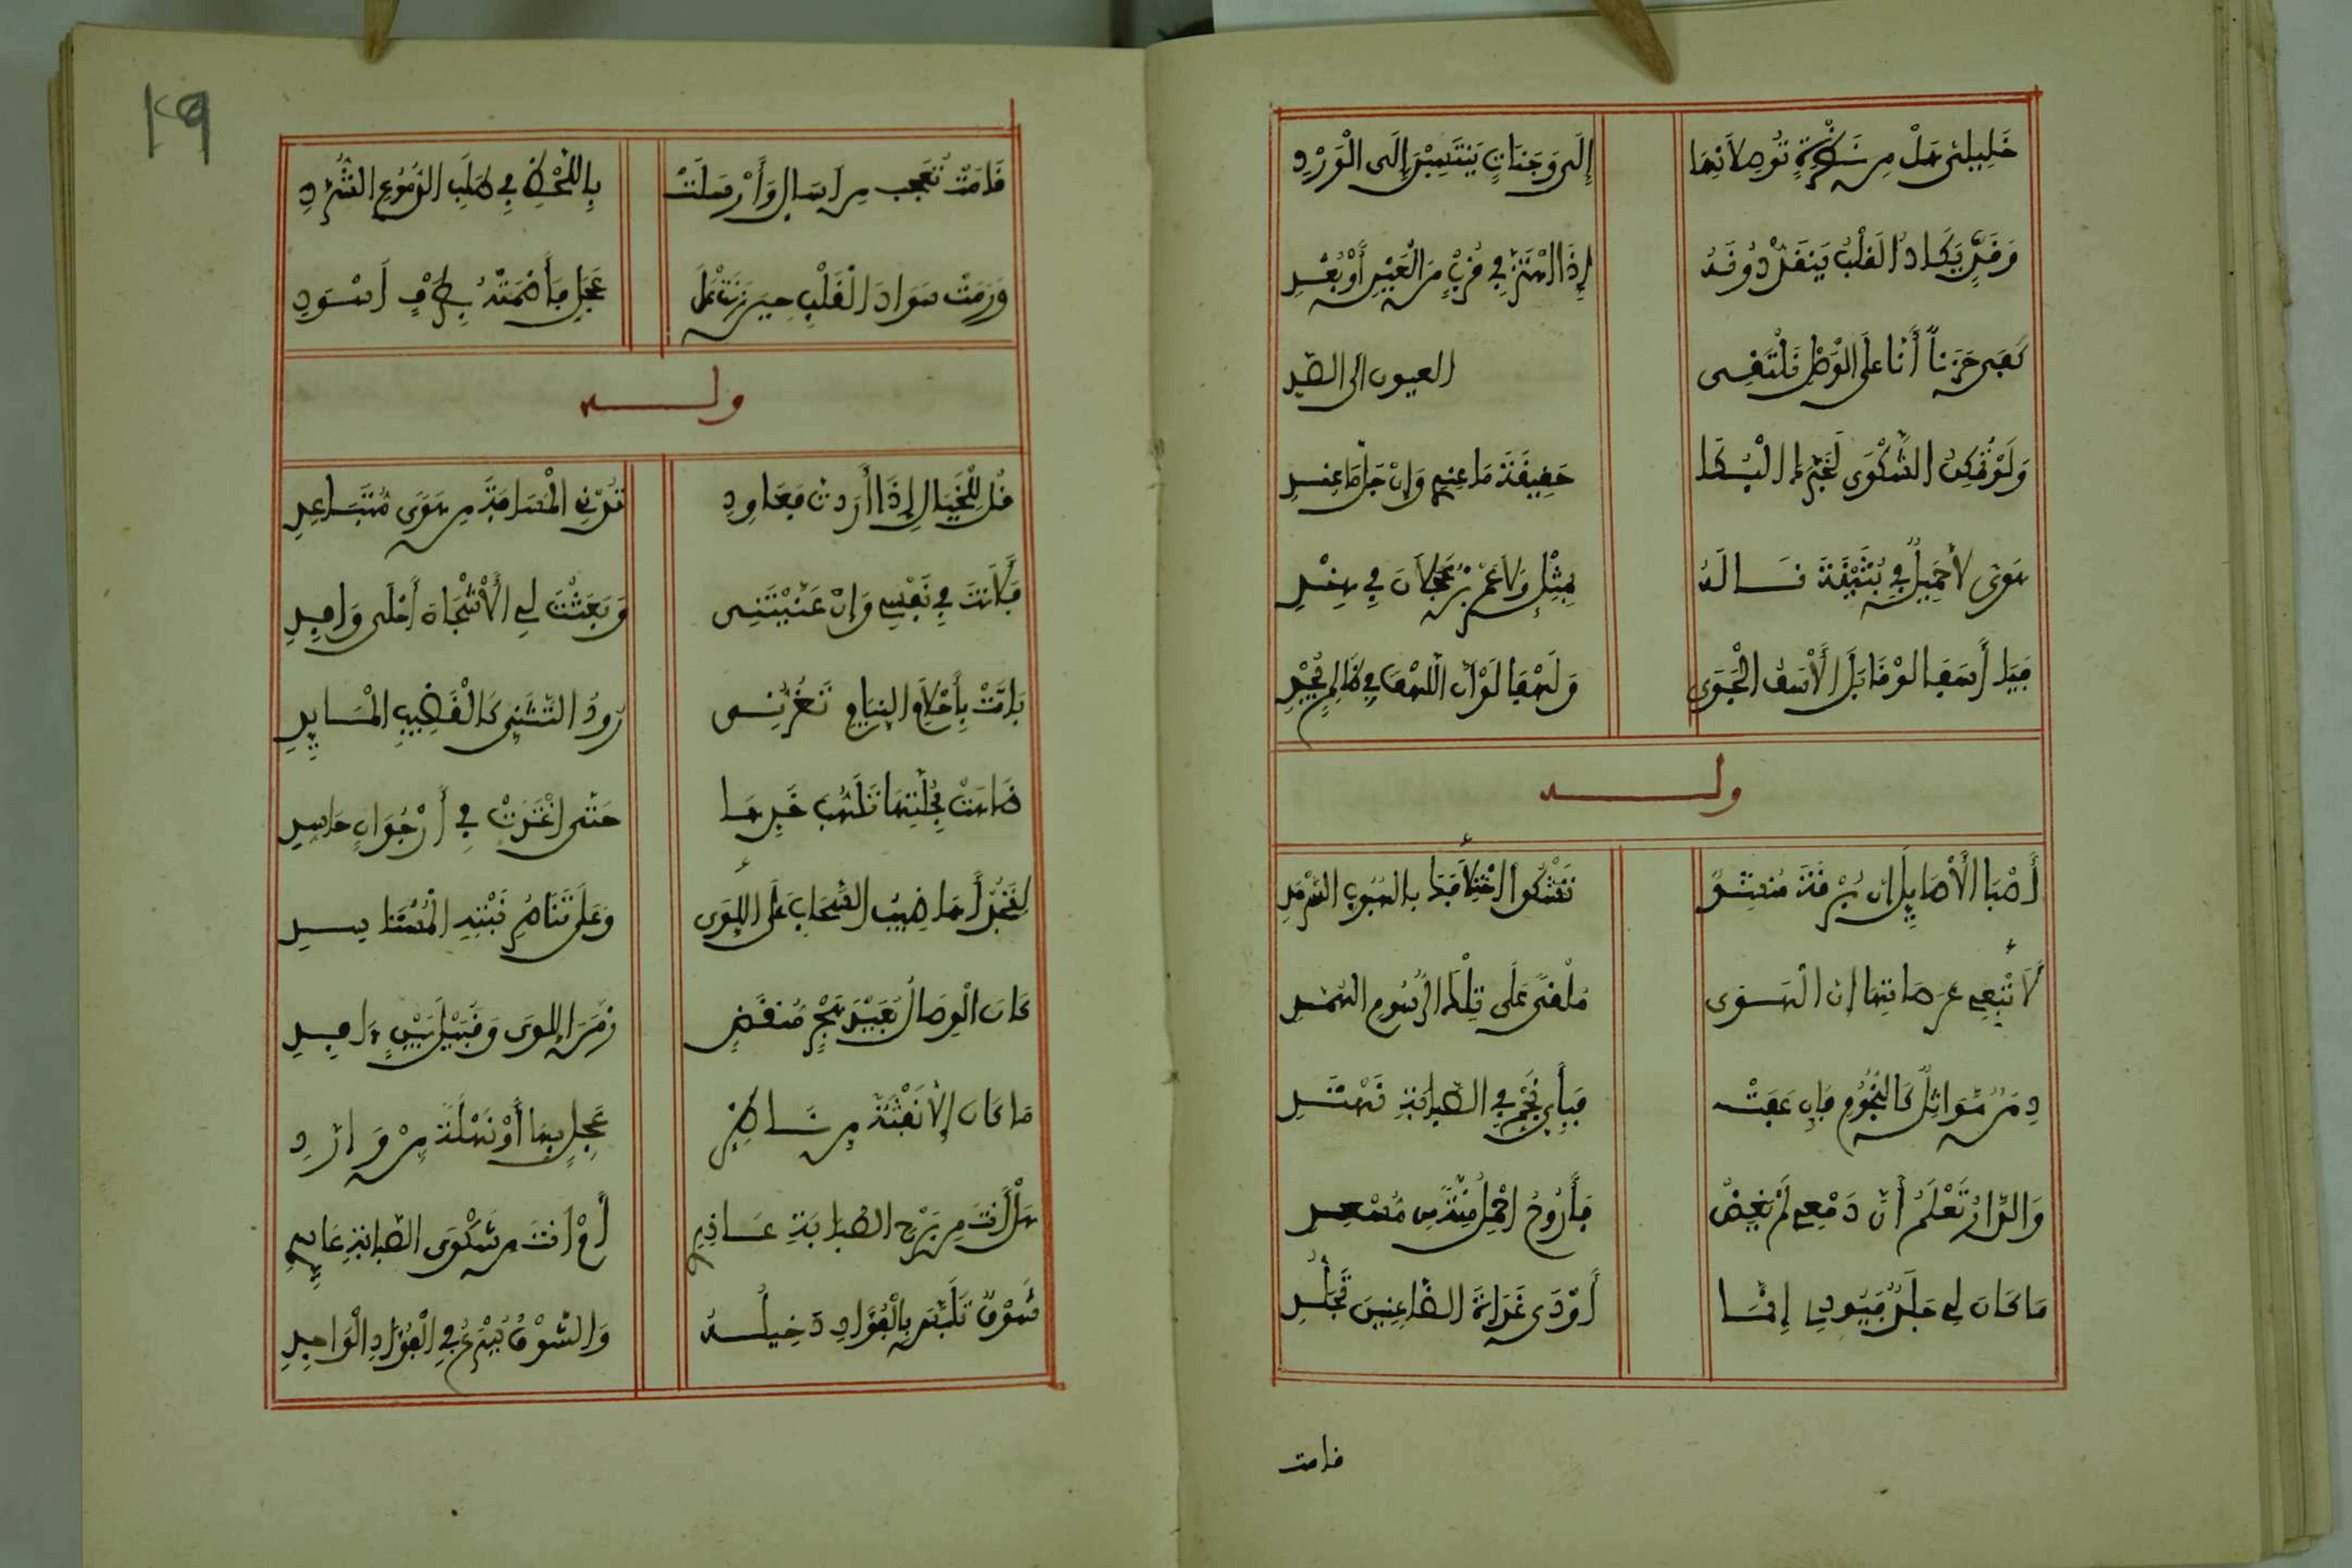 خَلِيلَيَّ هَلْ مِن نَظْرَةٍ تُوصِلَانِهَا إِلَى وَجَنَاتٍ يَنْتَمِينَ إِلَى الْوَرْدِ
وَقَدٍّ يَكَادُ القَلْبُ يَنْقَدُّ دُونَهُ إِذَا اهْتَزَّ فِي قُرْبٍ مِنَ الْعَيْنِ أَوْ بُعْدِ
كَفَى حَزَناً أَنَّا عَلَى الْوَصْلِ نَلْتَقِي العيون الى الصد
وَلَوْ تُمْكِنُ الشَّكْوَى لَخَبَّرَهَا الْبُكَا حَقِيقَةَ مَا عِنْدِي وَإِنْ جَلَّ مَا عِنْدِي
هَوًى لَا جَمِيلٌ فِي بُثَيْنَةَ نَالَهُ بِمِثْلٍ وَلَا عَمْرُ بْنُ عَجْلَانَ فِي هِنْدِ
فَيَا أَسَفًا لَوْ قَابَلَ الْأَسَفُ الْجَوَى وَلَهْفًا لَوْ أَنَّ اللَّهْفَ فِي ظَالِمٍ يُجْدِي
ولـــه
أَصَبَا الْأَصَايِلِ إِنَّ بُرْقَةَ مُنْشِدٍ تَشْكُوا اخْتِلَافَكِ بِالهُبُوبِ السَّرْمَدِ
لَا تُتْبِعِي عَرَصَاتِهَا إِنَّ الْهَوَى مُلْقًى عَلَى تِلْكَ الرُّسُومِ الهُمَّدِ
دِمَنٌ مَوَاثِلُ كَالنُّجُومِ فَإِن عَفَتْ فَبِأَيِّ نَجْمٍ فِي الصَّبَابَةِ نَهْتَدِي
وَالدَّارُ تَعْلَمُ أَنَّ دَمْعِي لَمْ يَغِضْ فَأَرُوحُ احْمِلُ مِنَّةً مِن مُسْعِدِ
مَا كَانَ لِي جَلَدٌ فَيُودِي إِنَّمَا أَوْدَى غَدَاةَ الظَّاعِنِينَ تَجَلُّدِي
قامت
قَامَتْ تُعَجِّبُ مِن اسَايَ وَأَرْسَلَتْ بِاللَّحْظِ فِي طَلَبِ الدُّمُوعِ الشُّرَّدِ
وَرَمَتْ سَوَادَ الْقَلْبِ حِينَ رَنَتْ عَلَى عَجَلٍ فَأَصْمَتْهُ بِطَرْفٍ أَسْوَدِ
ولـــه
قُل لِلْخَيَالِ إِذَا أَرَدْتَ فَعَاوِدِ تُدْنِ الْمَسَافَةَ مِن هَوًى مُتَبَاعِدِ
فَلَأَنْتَ فِي نَفْسِي وَإِنْ عَنَّيْتَنِي وَبَعَثْتَ لِي الْأَشْجَانَ أَحْلَى وَافِدِ
بَاتَتْ بِأَحْلَامِ النِّيَامِ تَغُرُّنِي رُودُ التَّثَنِّي كَالْقَضِيبِ الْمَايِدِ
ضَاهَتْ بِحُلَّتِهَا تَلَهُّبَ خَدِّهَا حَتَّى اغْتَدَتْ فِي أَرْجُوَانٍ جَاسِدِ
لِنَجُدْ أَهَاضِيبُ السَّحَابِ عَلَى اللِّوَى وَعَلَى تَنَاضُرِ نَبْتِهِ الْمُسْتَاسِدِ
كَانَ الْوِصَالُ بُعَيْدَ هَجْرٍ مُنْقَضٍ زَمَنَ اللِّوَى وَقُبَيْلَ بَيْنٍ وَافِدِ
مَا كَانَ إِلَّا لَفْتَةً مِن نَاظِرٍ عَجِلٍ بِهَا أَوْ نَهْلَةً مِنْ وَارِدِ
هَلْ أَنْتَ مِن بَرْحِ الصَّبَابَةِ عَاذِرِي أَمْ أَنْتَ مِن شَكْوَى الصَّبَابَةِ عَايِدِي
شَوْقٌ تَلَبَّسَ بِالْفُؤَادِ دَخِيلُهُ وَالشَّوْقُ يُسْرِعُ فِي الْفُؤَادِ الْوَاجِدِ